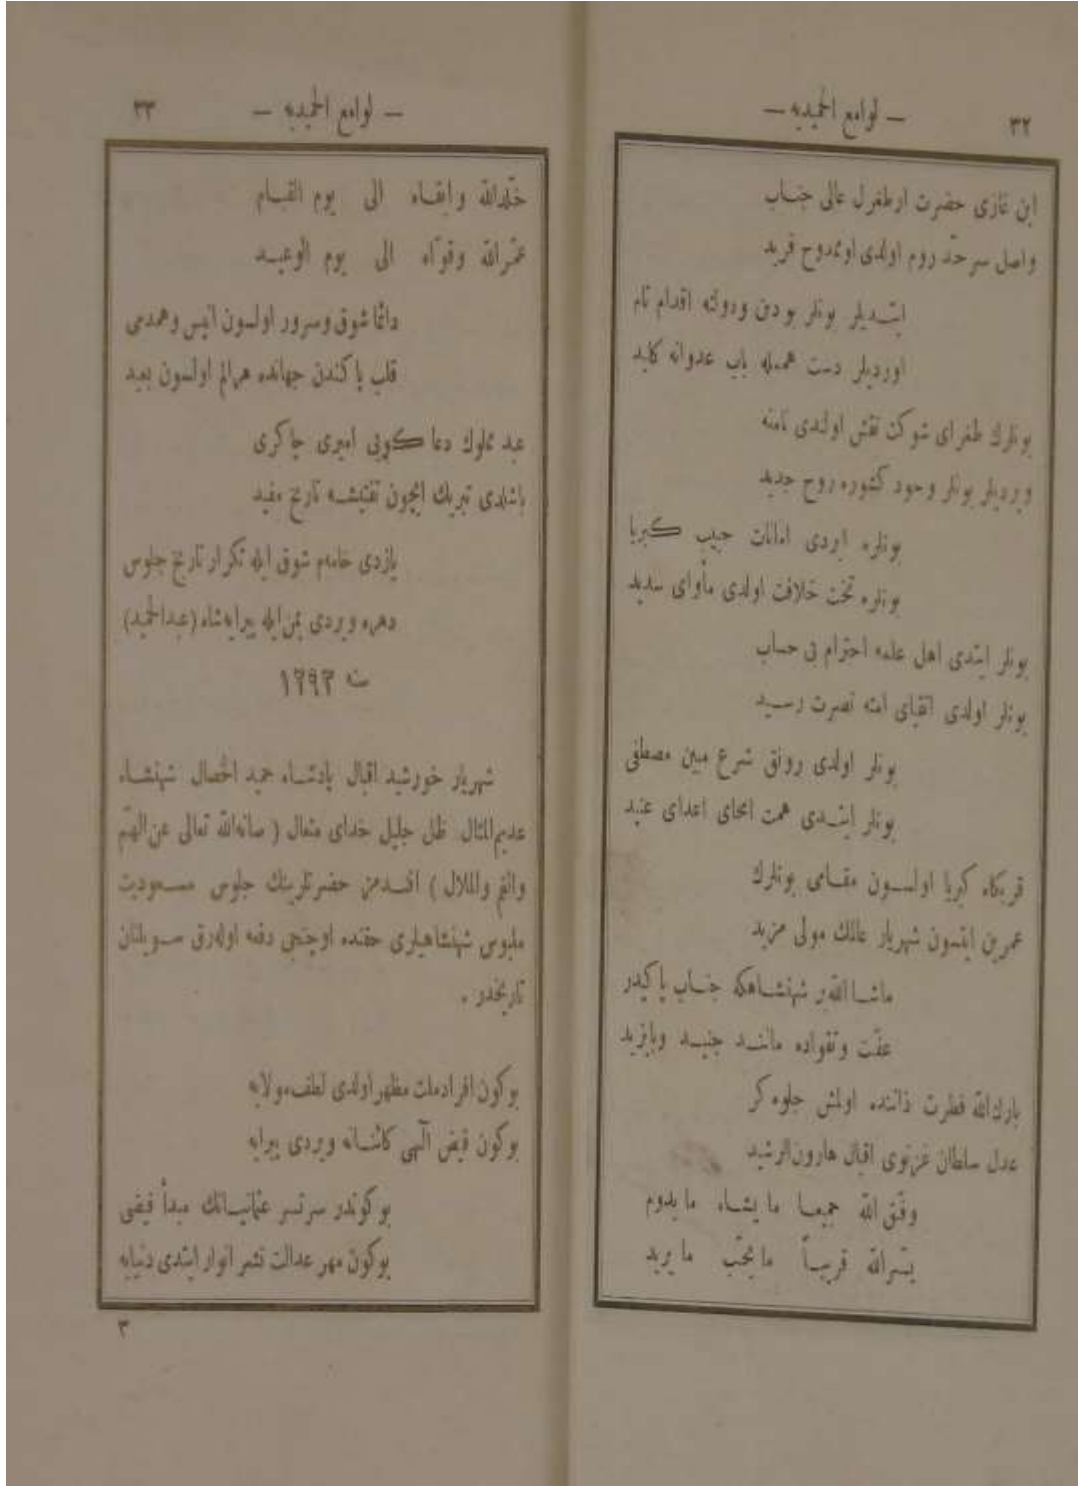 ٣٢
— لوامع الحميديه —
ابن غازى حضرت ارطغرل عالى جناب
واصل سرحدّ روم اولدى اوممدوح فريد
ايتـديلر بونلر بودين ودولته اقدام تام
اورديلر دست هممله باب عدوانه كليد
بونلرك طغراى شوكت نقش اولـدى نامنه
ويرديلر بونلر وجود كشوره روح جديد
بونلره ايردى امانات حبيب كبريا
بونلره تخت خلافت اولدى مأواى سديد
بونلر ايتدى اهل علمه احترام بى حساب
بونلر اولدى اتقياى امته نصرت رسـيد
بونلر اولدى رونق شرع مبين مصطفى
بونلر ايتـدى همت امحاى اعداى عنيد
قربكاه كبريا اولسـون مقـامى بونلرك
عمرين ايتسون شهريار عالمك مولى مزيد
ماشـاالله بر شهنشـاهكه جنـاب پاكيدر
عفّت وتقواده ماننـد جنيـد وبايزيد
بارك الله فطرت ذاتنده اولمش جلوه كر
عدل سلطان غزنوى اقبال هارون الرشيد
وفّق الله جميعـا ما يشـاء ما يدوم
يسّرالله قريبـاً ما يحبّ ما يريد
— لوامع الحميديه —
٣٣
خلّدالله وابقـاه الى يوم القيـام
عمّرالله وقوّاه الى يوم الوعيـد
دائما شوق وسرور اولسون انيس وهمدمى
قلب پاكندن جهانده هرالم اولسون بعيد
عبد مملوك دعا كويى اميرى چاكرى
باشلدى تبريك ايچون تفتيشـه تاريخ مفيد
يازدى خامهم شوق ايله تكرار تاريخ جلوس
دهره ويردى يمن ايله پيرايه شاه (عبدالحميد)
سنه ١٢٩٣
شهريار خورشيد اقبال پادشـاه حميد الخصال شهنشـاه
عديم المثال ظل جليل خداى متعال ( صانه الله تعالى عن الهمّ
والغم والملال ) افنـدمز حضرتلرينك جلوس مسـعوديت
ملبوس شهنشاهيلرى حقنده اوچنجى دفعه اولهرق سـويلنان
تاريخدر .
بوكون افراد ملت مظهر اولدى لطف مولايه
بوكون فيض آلهى كائنـاته ويردى پيرايه
بوكوندر سرتسر عثمانيـانك مبدأ فيضى
بوكون مهر عدالت نشر انوار ايتدى دنيايه
٣